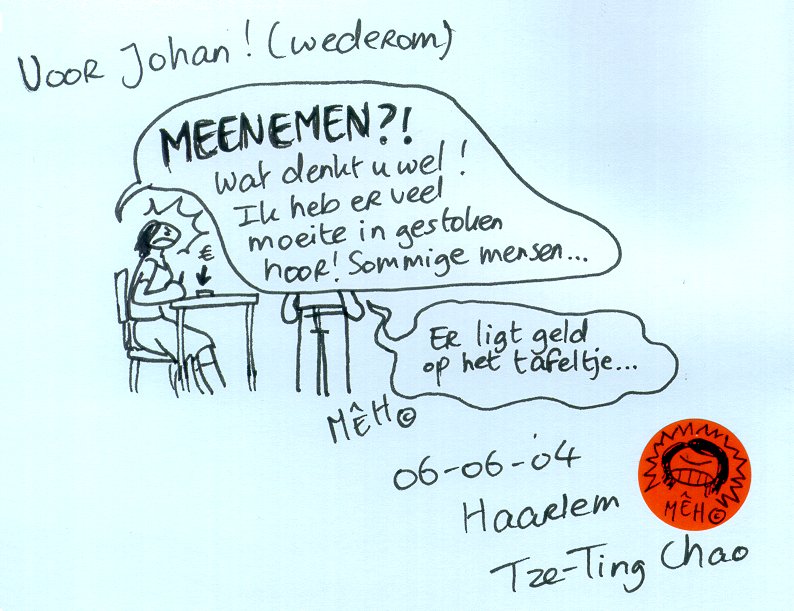 Voor Johan! (wederom)
MEENEMEN?!
Wat denkt u wel!
Ik heb er veel
moeite in gestoken
hoor! Sommige mensen...
€
Er ligt geld
op het tafeltje...
MÊH©
06-06-'04
Haarlem
MÊH©
Tze-Ting Chao